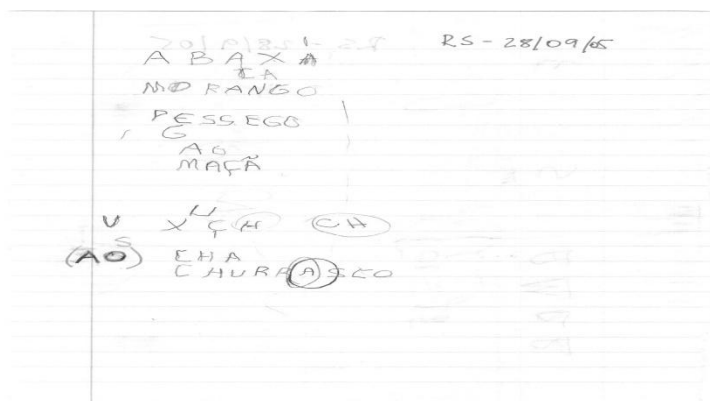 RS - 28/09/05
ABAXA
CA
MORANGO
PESSEGO
G
AO
MAÇÃ
U
V X ÇH CH
S
(AO) CHA
CHURRASCO